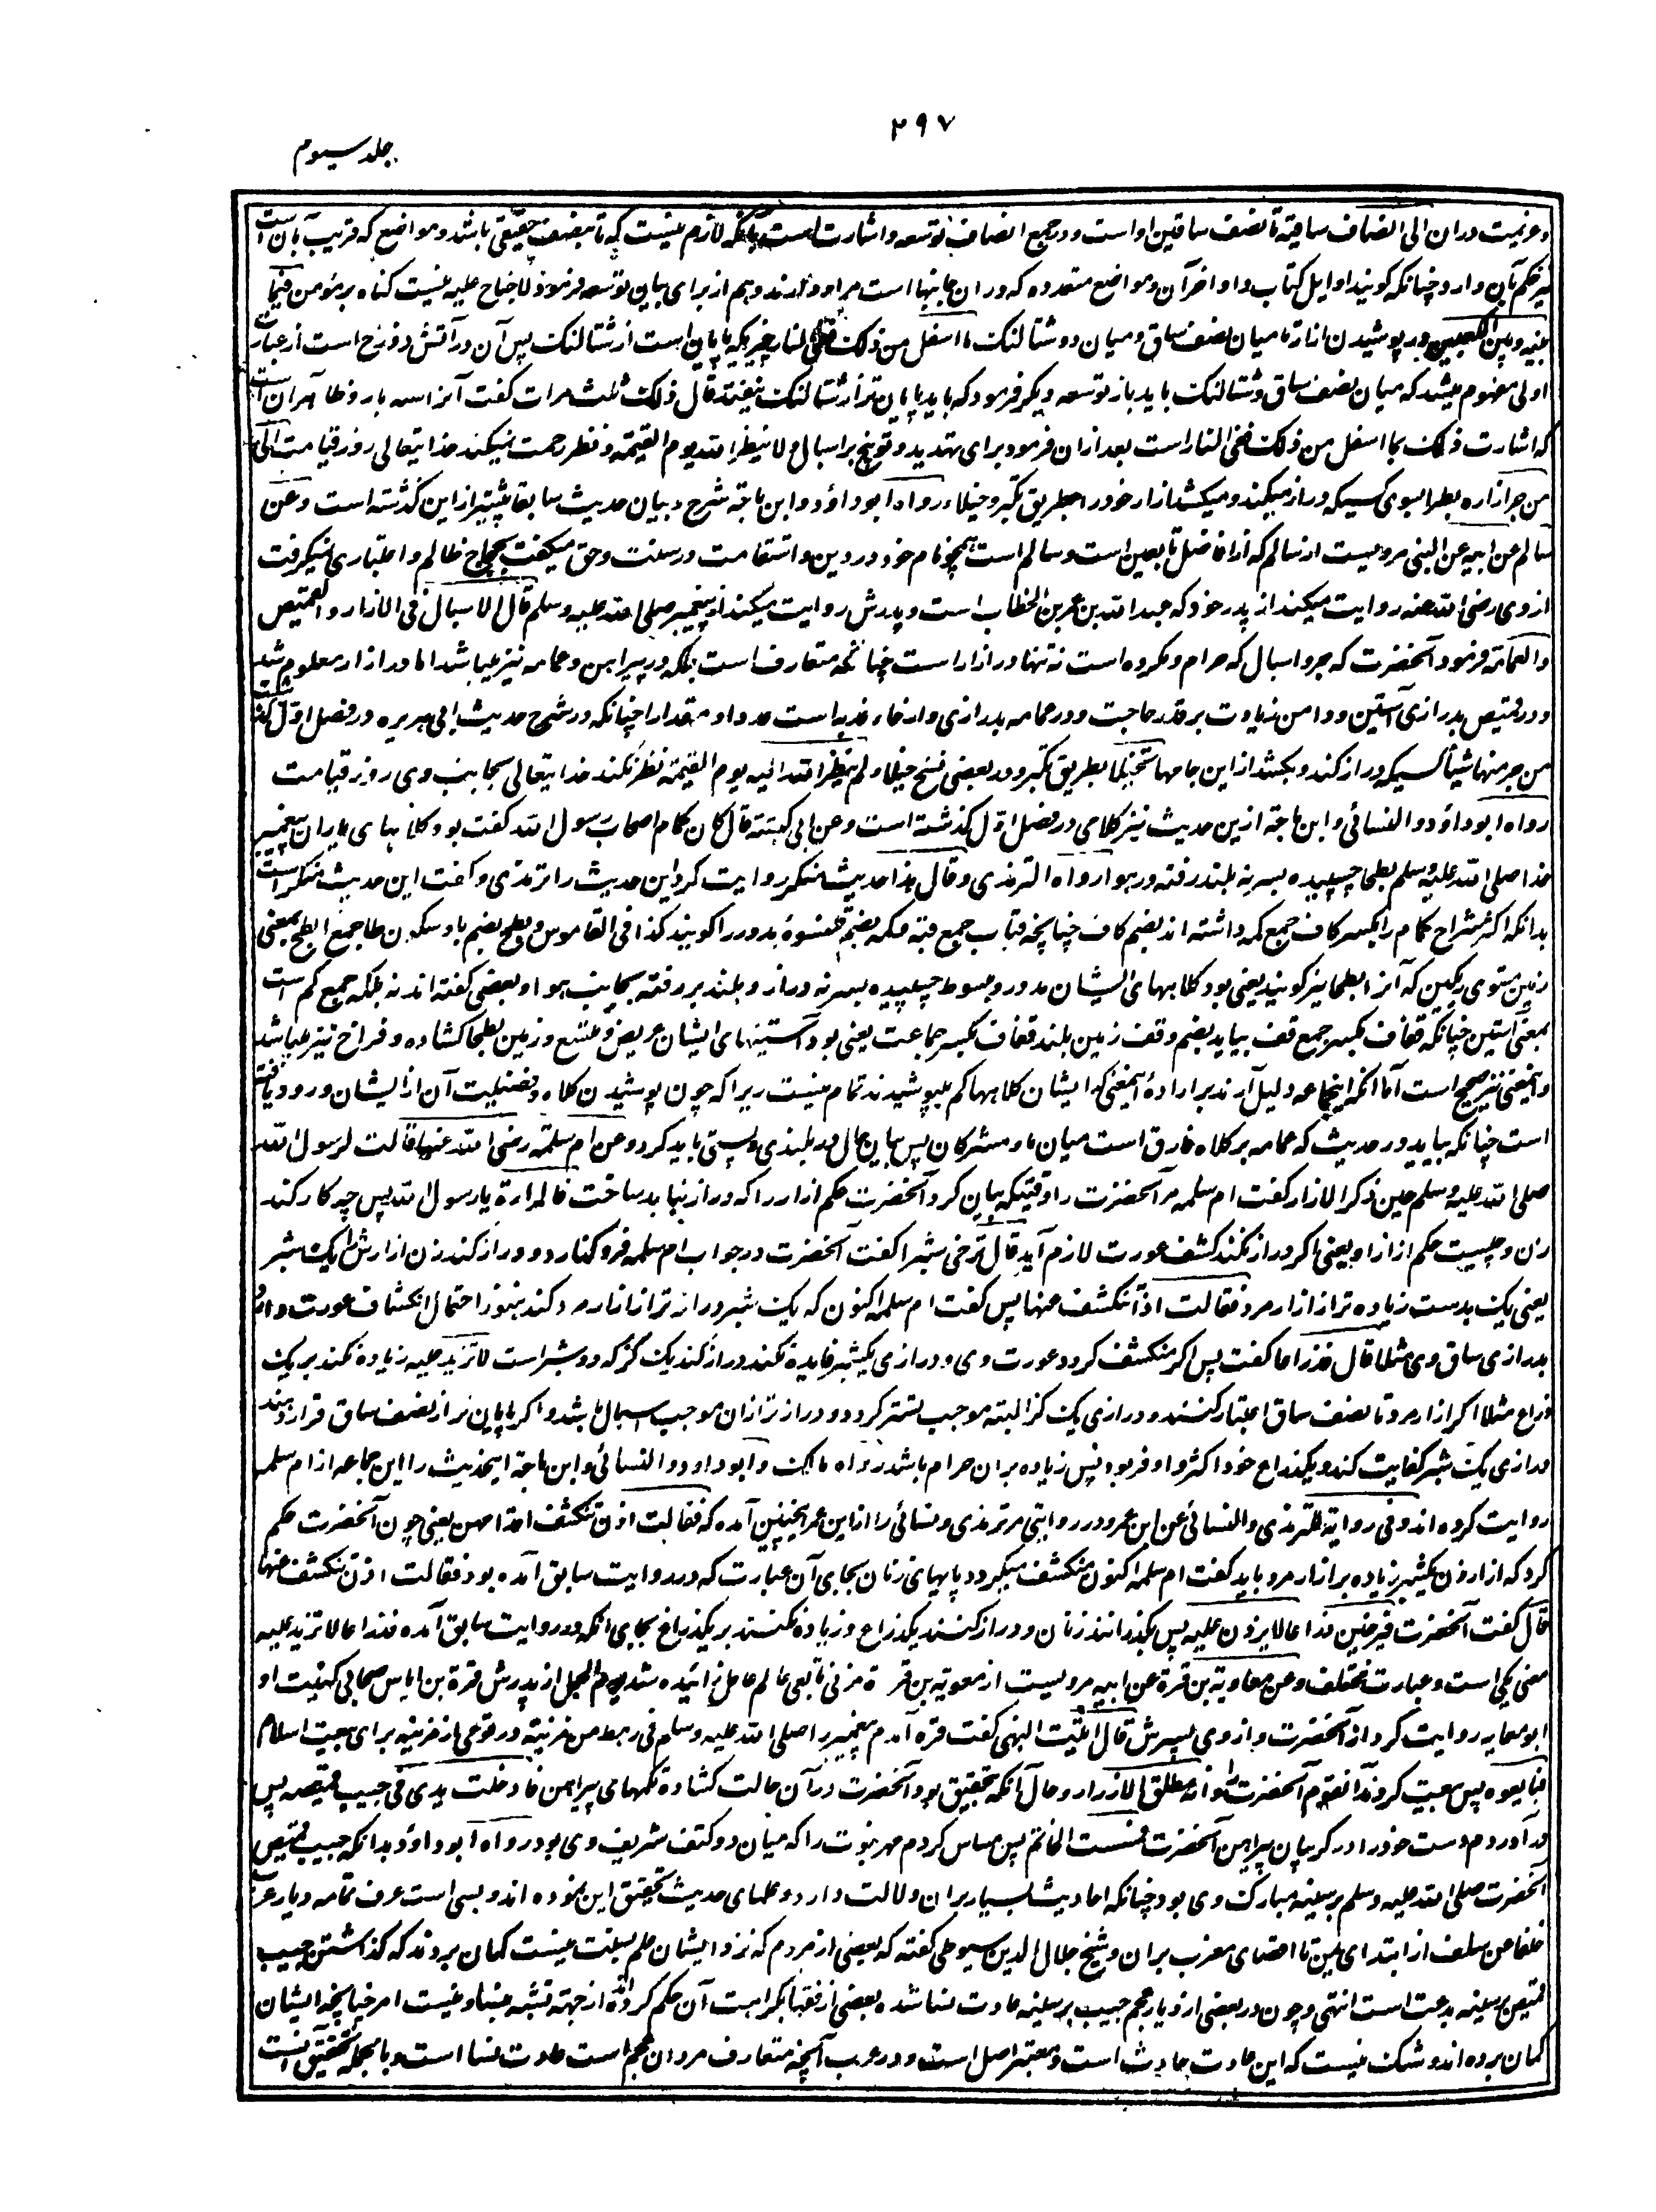 ۲۹۷
جلد سیوم
وعزیمت دران الی انصاف ساقیه تا نصف ساقین او است و در جمع انصاف توسعه و اشارت است بآنکه لازم نیست که تا بنصف حقیقی باشد و مواضع که قریب بآن است
نیز حکم آن دارد چنانکه گویند اوایل کتاب و اواخر آن و مواضع متعدده که دران جانبها است مراد دارند و هم از برای بیان توسعه فرمود لا جناح علیه نیست گناه بر مؤمن فیما
بینه و بین الکعبین در پوشیدن ازار تا میان نصف ساق و میان دو شتالنک ما اسفل من ذلک ففی النار چیزیکه پایان است از شتالنک پس آن در آتش دوزخ است از عبارت
اولی مفهوم میشد که میان نصف ساق و شتالنک باید باز توسعه دیگر فرمود که باید پایان تر از شتالنک نیفتد قال ذلک ثلث مرات گفت آنرا سه بار و ظاهر آن است
که اشارت ذلک بما اسفل من ذلک ففی النار است بعد ازان فرمود برای تهدید و توبیخ بر اسبال و لا ینظر الله یوم القیمة و نظر رحمت نمیکند خدایتعالی روز قیامت الی
من جر ازاره بطرا بسوی کسیکه دراز میکند و میکشد ازار خود را بطریق تکبر و خیلاء رواه ابو داؤد و ابن ماجة شرح و بیان حدیث سابقا پیشتر از این گذشته است وعن
سالم عن ابیه عن النبی مرویست از سالم که از افاضل تابعین است و سالم است همچو نام خود در دین و استقامت در سنت و حق میگفت بحجاج ظالم و اعتباری نمیگرفت
از وی رضی الله عنه روایت میکند از پدر خود که عبد الله بن عمر بن الخطاب است و پدرش روایت میکند از پیغمبر صلی الله علیه وسلم قال الاسبال فی الازار والقمیص
والعمامة فرمود آنحضرت که جر و اسبال که حرام و مکروه است نه تنها در ازار است چنانچه متعارف است بلکه در پیراهن و عمامه نیز میباشد اما در ازار معلوم شد
و در قمیص بدرازی آستین و دامن زیادت بر قدر حاجت و در عمامه بدرازی و ارخاء عذبه است حد و مقدار را چنانکه در شرح حدیث ابی هریره در فصل اول گذشت
من جر منها شیئا کسیکه دراز کند و بکشد از این جامها تخیلا بطریق تکبر و در بعضی نسخ خیلاء لم ینظر الله الیه یوم القیمة نظر نکند خدایتعالی بجانب وی روز قیامت
رواه ابو داؤد والنسائی و ابن ماجة ازین حدیث نیز کلامی در فصل اول گذشته است وعن ابی کبشة قال کان کمام اصحاب رسول الله گفت بود کلاههای یاران پیغمبر
خدا صلی الله علیه وسلم بطحا چسپیده بسر نه بلند رفته در هوا رواه الترمذی وقال هذا حدیث منکر روایت کرد این حدیث را ترمذی و گفت این حدیث منکر است
بدانکه اکثر شراح کمام را بکسر کاف جمع کمه داشته اند بضم کاف چنانچه قباب جمع قبه مکه بضم قلنسوۀ مدور را گویند کذا فی القاموس و بطح بضم با و سکون طا جمع ابطح بمعنی
زمین مستوی ریگین که آنرا بطحا نیز گویند یعنی بود کلاههای ایشان مدور و مبسوط چسپیده بسر نه دراز و بلند بر رفته بجانب هوا و بعضی گفته اند نه بلکه جمع کم است
بمعنی آستین چنانکه قفاف بکسر جمع قف بیاید بضم و قف زمین بلند قفاف بکسر جماعت یعنی بود آستینهای ایشان عریض و متسع و زمین بطحا کشاده و فراخ نیز میباشد
و اینمعنی نیز صحیح است اما آنکه اینجماعه دلیل آرند بر ارادۀ اینمعنی که ایشان کلاهها کم میپوشیدند تمام نیست زیرا که چون پوشیدن کلاه و فضیلت آن از ایشان ورود یافته
است چنانکه بیاید در حدیث که عمامه بر کلاه فارق است میان ما و مشرکان پس بیان حال در بلندی و پستی باید کرد وعن ام سلمة رضی الله عنها قالت لرسول الله
صلی الله علیه وسلم حین ذکر الازار گفت ام سلمه مر آنحضرت را وقتیکه بیان کرد آنحضرت حکم ازار را که دراز نباید ساخت فالمراة یا رسول الله پس چه کار کند
زن و چیست حکم ازار او یعنی اگر دراز نکند کشف عورت لازم آید قال ترخی شبرا گفت آنحضرت در جواب ام سلمه فرو گذارد و دراز کند زن ازارش را یک شبر
یعنی یک بدست زیاده تر از ازار مرد فقالت اذا تنکشف عنها پس گفت ام سلمه اکنون که یک شبر دراز تر از ازار مرد کند هنوز احتمال انکشاف عورت دارد
بدرازی ساق وی مثلا قال فذراعا گفت پس اگر منکشف گردد عورت وی و درازی یکشبر فایده نکند دراز کند یک گز که دو شبر است لا تزید علیه زیاده نکند بر یک
ذراع مثلا اگر ازار مرد تا نصف ساق اعتبار کنند و درازی یک گز البته موجب تستر گردد و دراز تر ازان موجب اسبال باشد و اگر پایان تر از نصف ساق قرار دهند
درازی یک شبر کفایت کند و یکذراع خود اکثر و اوفر بود پس زیاده بران حرام باشد رواه مالک و ابو داود و النسائی و ابن ماجة اینحدیث را این جماعه از ام سلمه
روایت کرده اند و فی روایة الترمذی والنسائی عن ابن عمر و در روایتی مر ترمذی و نسائی را از ابن عمر اینچنین آمده که فقالت اذن تنکشف اقدامهن یعنی چون آنحضرت حکم
کرد که ازار زن یکشبر زیاده بر ازار مرد باید گفت ام سلمه اکنون منکشف میگردد پایهای زنان بجای آن عبارت که در روایت سابق آمده بود فقالت اذن تنکشف عنها
قال گفت آنحضرت فیرخین ذراعا لا یزدن علیه پس بگذارانند زنان و دراز کنند یکذراع و زیاده نکنند بر یکذراع بجای آنکه در روایت سابق آمده فذراعا لا تزید علیه
معنی یکی است و عبارت مختلف وعن معاویة بن قرة عن ابیه مرویست از معویه بن قرة مزنی تابعی عالم عامل زائیده شد یوم الجمل از پدرش قرة بن ایاس صحابی کنیت او
ابو معاویه روایت کرد از آنحضرت و از وی پسرش قال اتیت النبی گفت قره آمدم پیغمبر را صلی الله علیه وسلم فی رهط من مزینة در قومی از مزینه برای بیعت اسلام
فبایعوه پس بیعت کردند آنقوم آنحضرت را وانه مطلق الازرار و حال آنکه بتحقیق بود آنحضرت در آن حالت کشاده تکمهای پیراهن فادخلت یدی فی جیب قمیصه پس
درآوردم دست خود را در گریبان پیراهن آنحضرت فمسست الخاتم پس مساس کردم مهر نبوت را که میان دو کتف شریف وی بود رواه ابو داؤد بدانکه جیب قمیص
آنحضرت صلی الله علیه وسلم بر سینه مبارک وی بود چنانکه احادیث بسیار بران دلالت دارد و علمای حدیث تحقیق این نموده اند و بسی است عرف تهامه و دیار عرب
خلفا عن سلف از ابتدای یمن تا اقصای مغرب بران و شیخ جلال الدین سیوطی گفته که بعضی از مردم که نزد ایشان علم بسنت نیست گمان بردند که گذاشتن جیب
قمیص بر سینه بدعت است انتهی و چون در بعضی از دیار عجم جیب بر سینه عادت نسا شده بعضی از فقها بکراهت آن حکم کرده اند از جهة تشبه بنسا و نیست امر چنانچه ایشان
گمان برده اند و شک نیست که این عادت حادث است و معتبر اصل است و در عرب آنچه متعارف مردان عجم است عادت نسا است و بالجمله تحقیق آنست